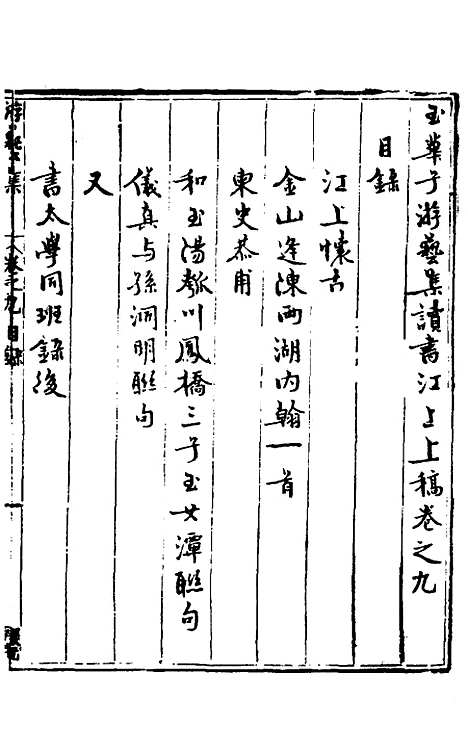 玉華子游藝集讀書江上上稿卷之九
目錄
江上懷古
金山逢陳兩湖內翰一首
東史恭甫
和玉湯瓠川鳳橋三子玉女潭聯句
儀真与孫洞明聯句
又
書太學同班錄後
游藝集
卷之九目錄